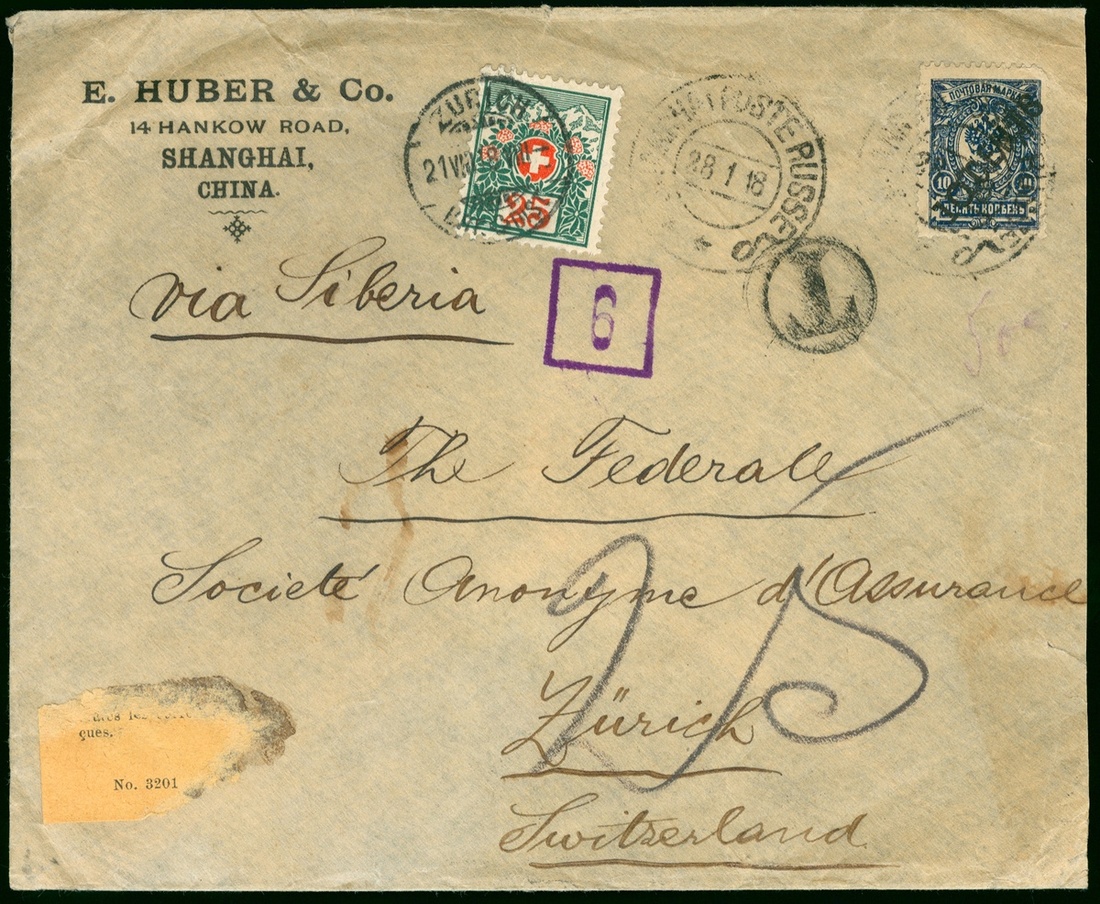 E. HUBER & Co.
14 HANKOW ROAD,
SHANGHAI,
CHINA.
via Siberia
ZÜRICH
21 VIII
25
POSTE RUSSE
28 1 18
ПОЧТОВАЯ МАРКА
10
ДЕСЯТЬ КОПѢЕКЪ
T
6
The Federale
Societé Anonyme d'Assurance
Zürich
Switzerland
25
ques.
No. 3201